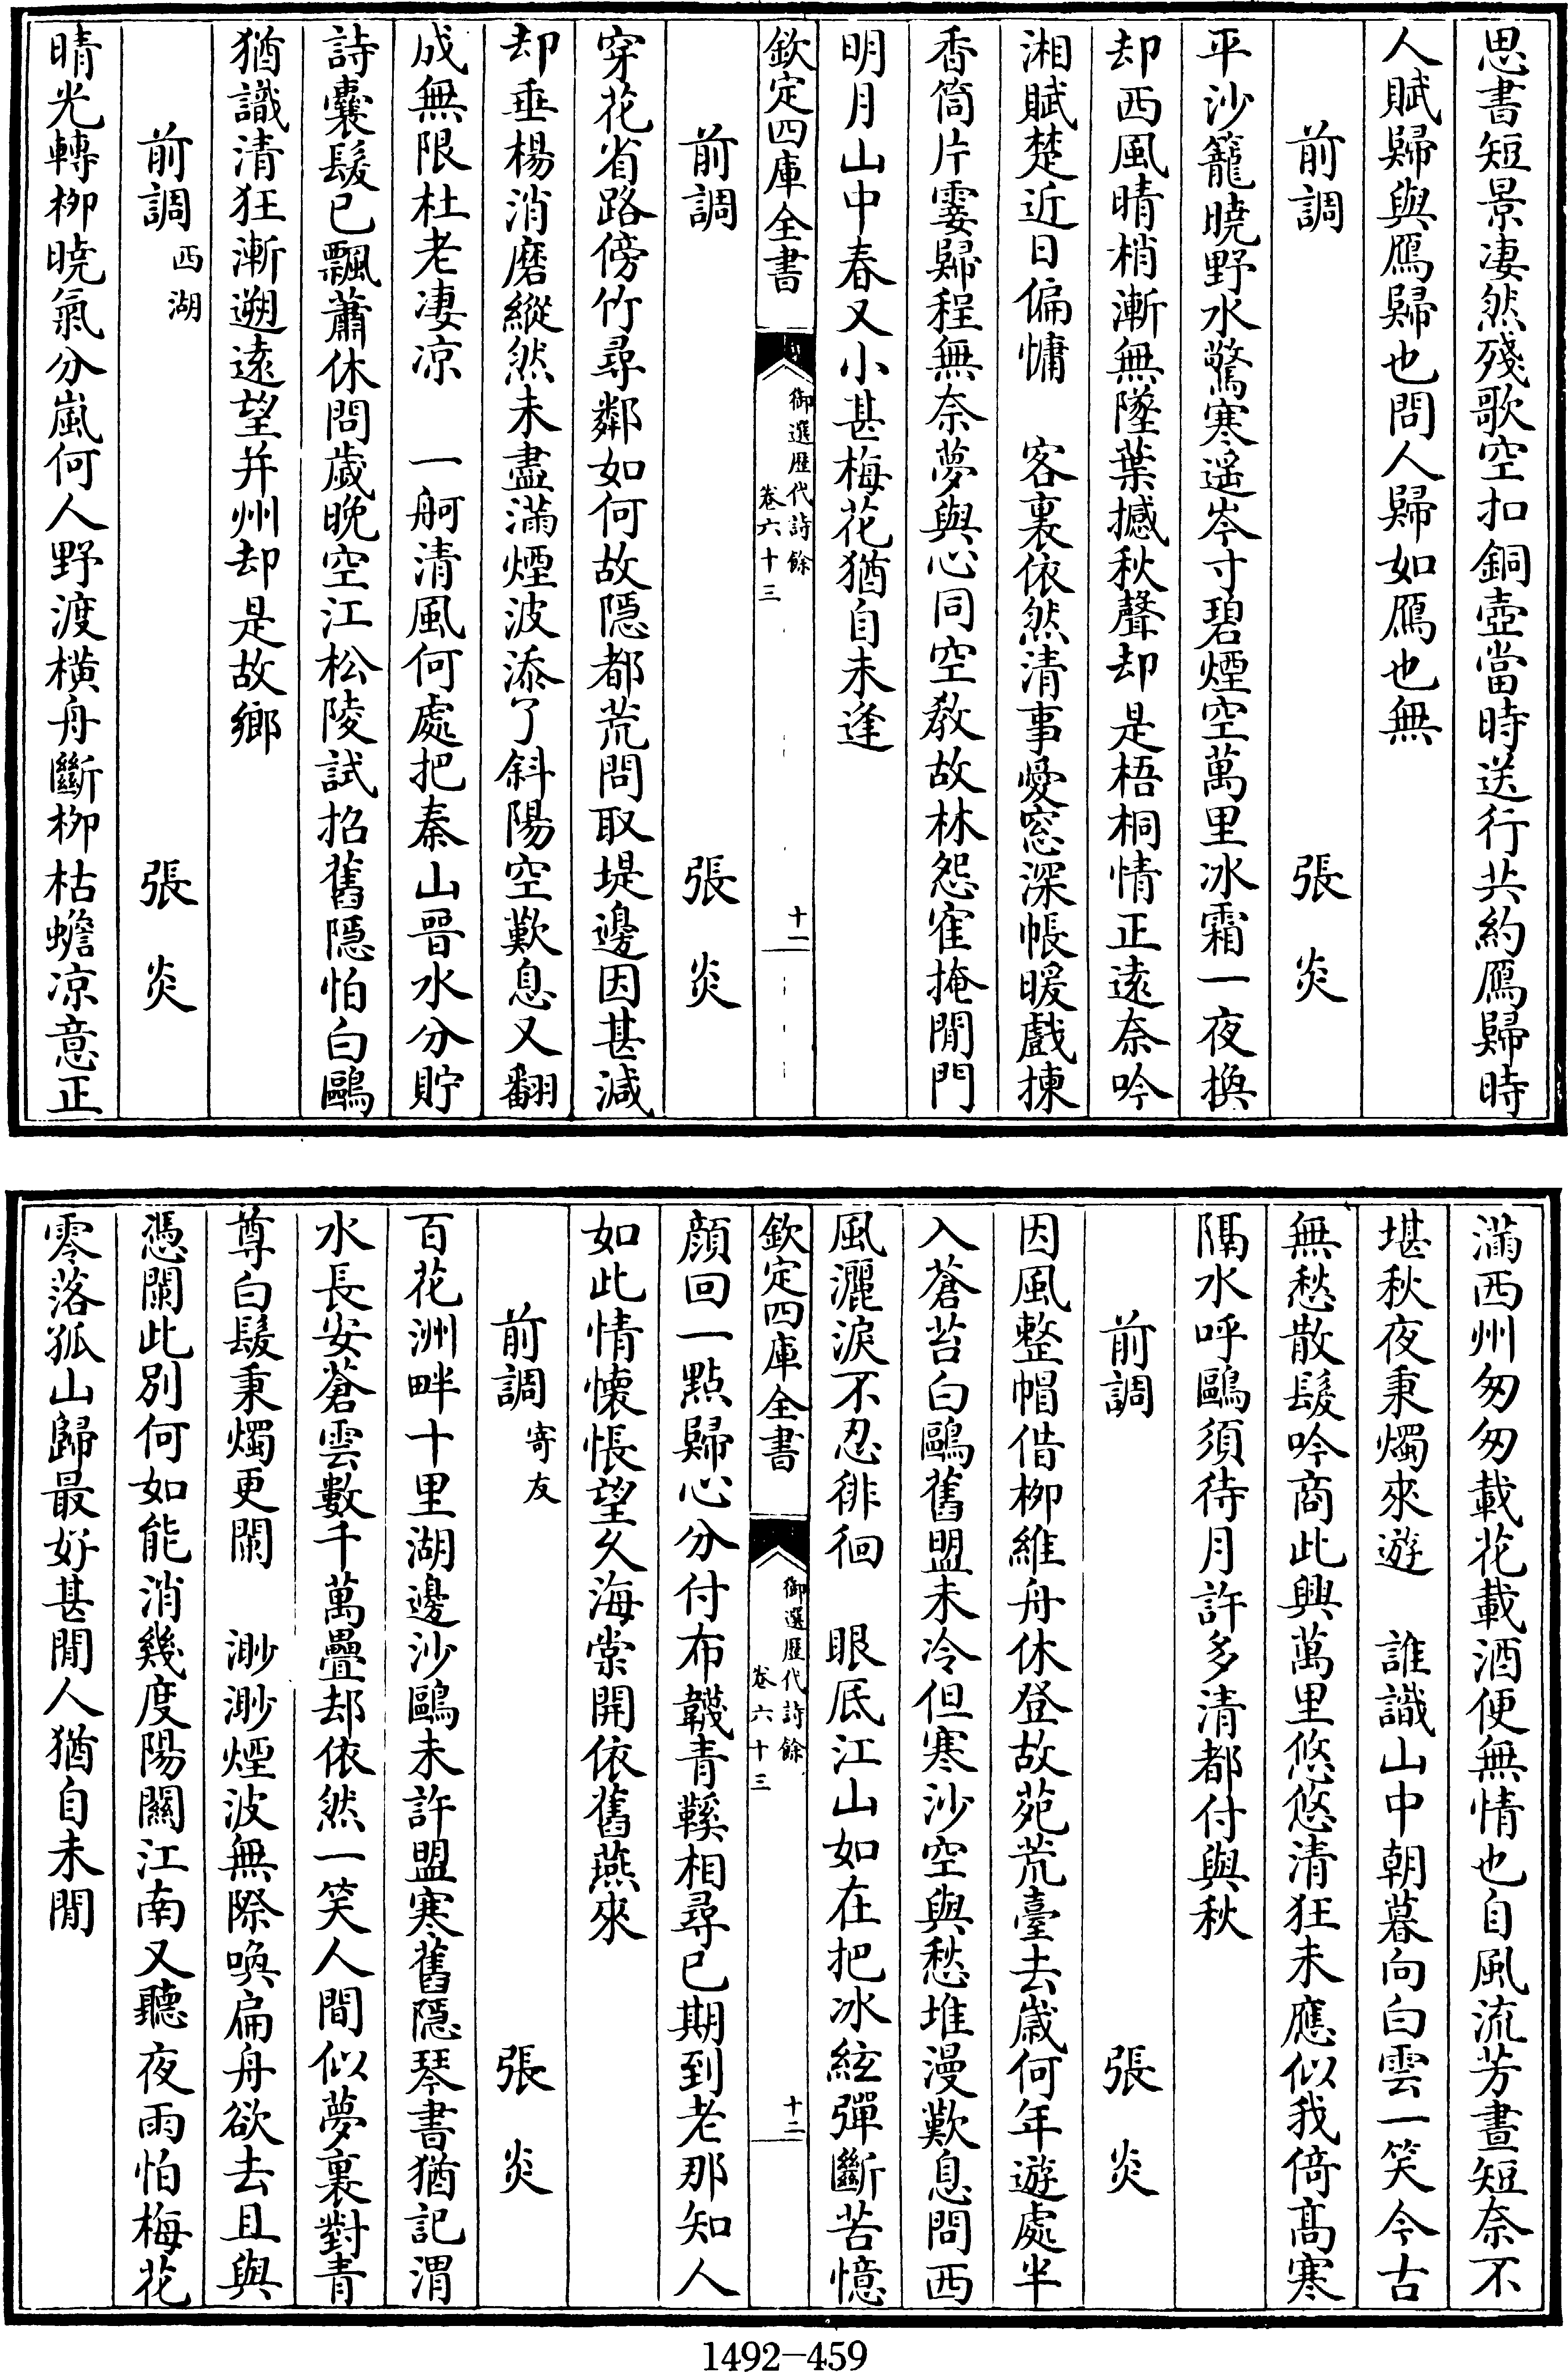 思書短景凄然殘歌空扣銅壺當時送行共約鴈歸時
人賦歸與鴈歸也問人歸如鴈也無
前調 張炎
平沙籠曉野水驚寒遥岑寸碧煙空萬里冰霜一夜換
却西風晴梢漸無墜葉撼秋聲却是梧桐情正遠奈吟
湘賦楚近日偏慵　客裏依然清事愛窓深帳暖戲揀
香筒片霎歸程無奈夢與心同空教故林怨隺掩閒門
明月山中春又小甚梅花猶自未逢
欽定四庫全書 御選歷代詩餘 卷六十三 十一
前調 張炎
穿花省路傍竹尋鄰如何故隱都荒問取堤邊因甚減
却垂楊消磨縱然未盡滿煙波添了斜陽空歎息又翻
成無限杜老凄凉　一舸清風何處把秦山晉水分貯
詩囊髮已飄蕭休問歲晚空江松陵試招舊隱怕白鷗
猶識清狂漸遡遠望并州却是故鄉
前調 西湖 張炎
晴光轉柳曉氣分嵐何人野渡橫舟斷柳枯蟾凉意正
滿西州匆匆載花載酒便無情也自風流芳晝短奈不
堪秋夜秉燭來遊　誰識山中朝暮向白雲一笑今古
無愁散髮吟商此興萬里悠悠清狂未應似我倚髙寒
隔水呼鷗須待月許多清都付與秋
前調 張炎
因風整帽借柳維舟休登故苑荒臺去歲何年遊處半
入蒼苔白鷗舊盟未冷但寒沙空與愁堆漫歎息問西
風灑淚不忍徘徊　眼底江山如在把冰絃彈斷苦憶
顔回一點歸心分付布韈青鞵相尋已期到老那知人
如此情懷悵望久海棠開依舊燕來
欽定四庫全書 御選歷代詩餘 卷六十三 十二
前調 寄友 張炎
百花洲畔十里湖邊沙鷗未許盟寒舊隱琴書猶記渭
水長安蒼雲數千萬疊却依然一笑人間似夢裏對青
尊白髮秉燭更闌　渺渺煙波無際喚扁舟欲去且與
憑闌此別何如能消幾度陽關江南又聽夜雨怕梅花
零落孤山歸最好甚閒人猶自未閒
1492-459